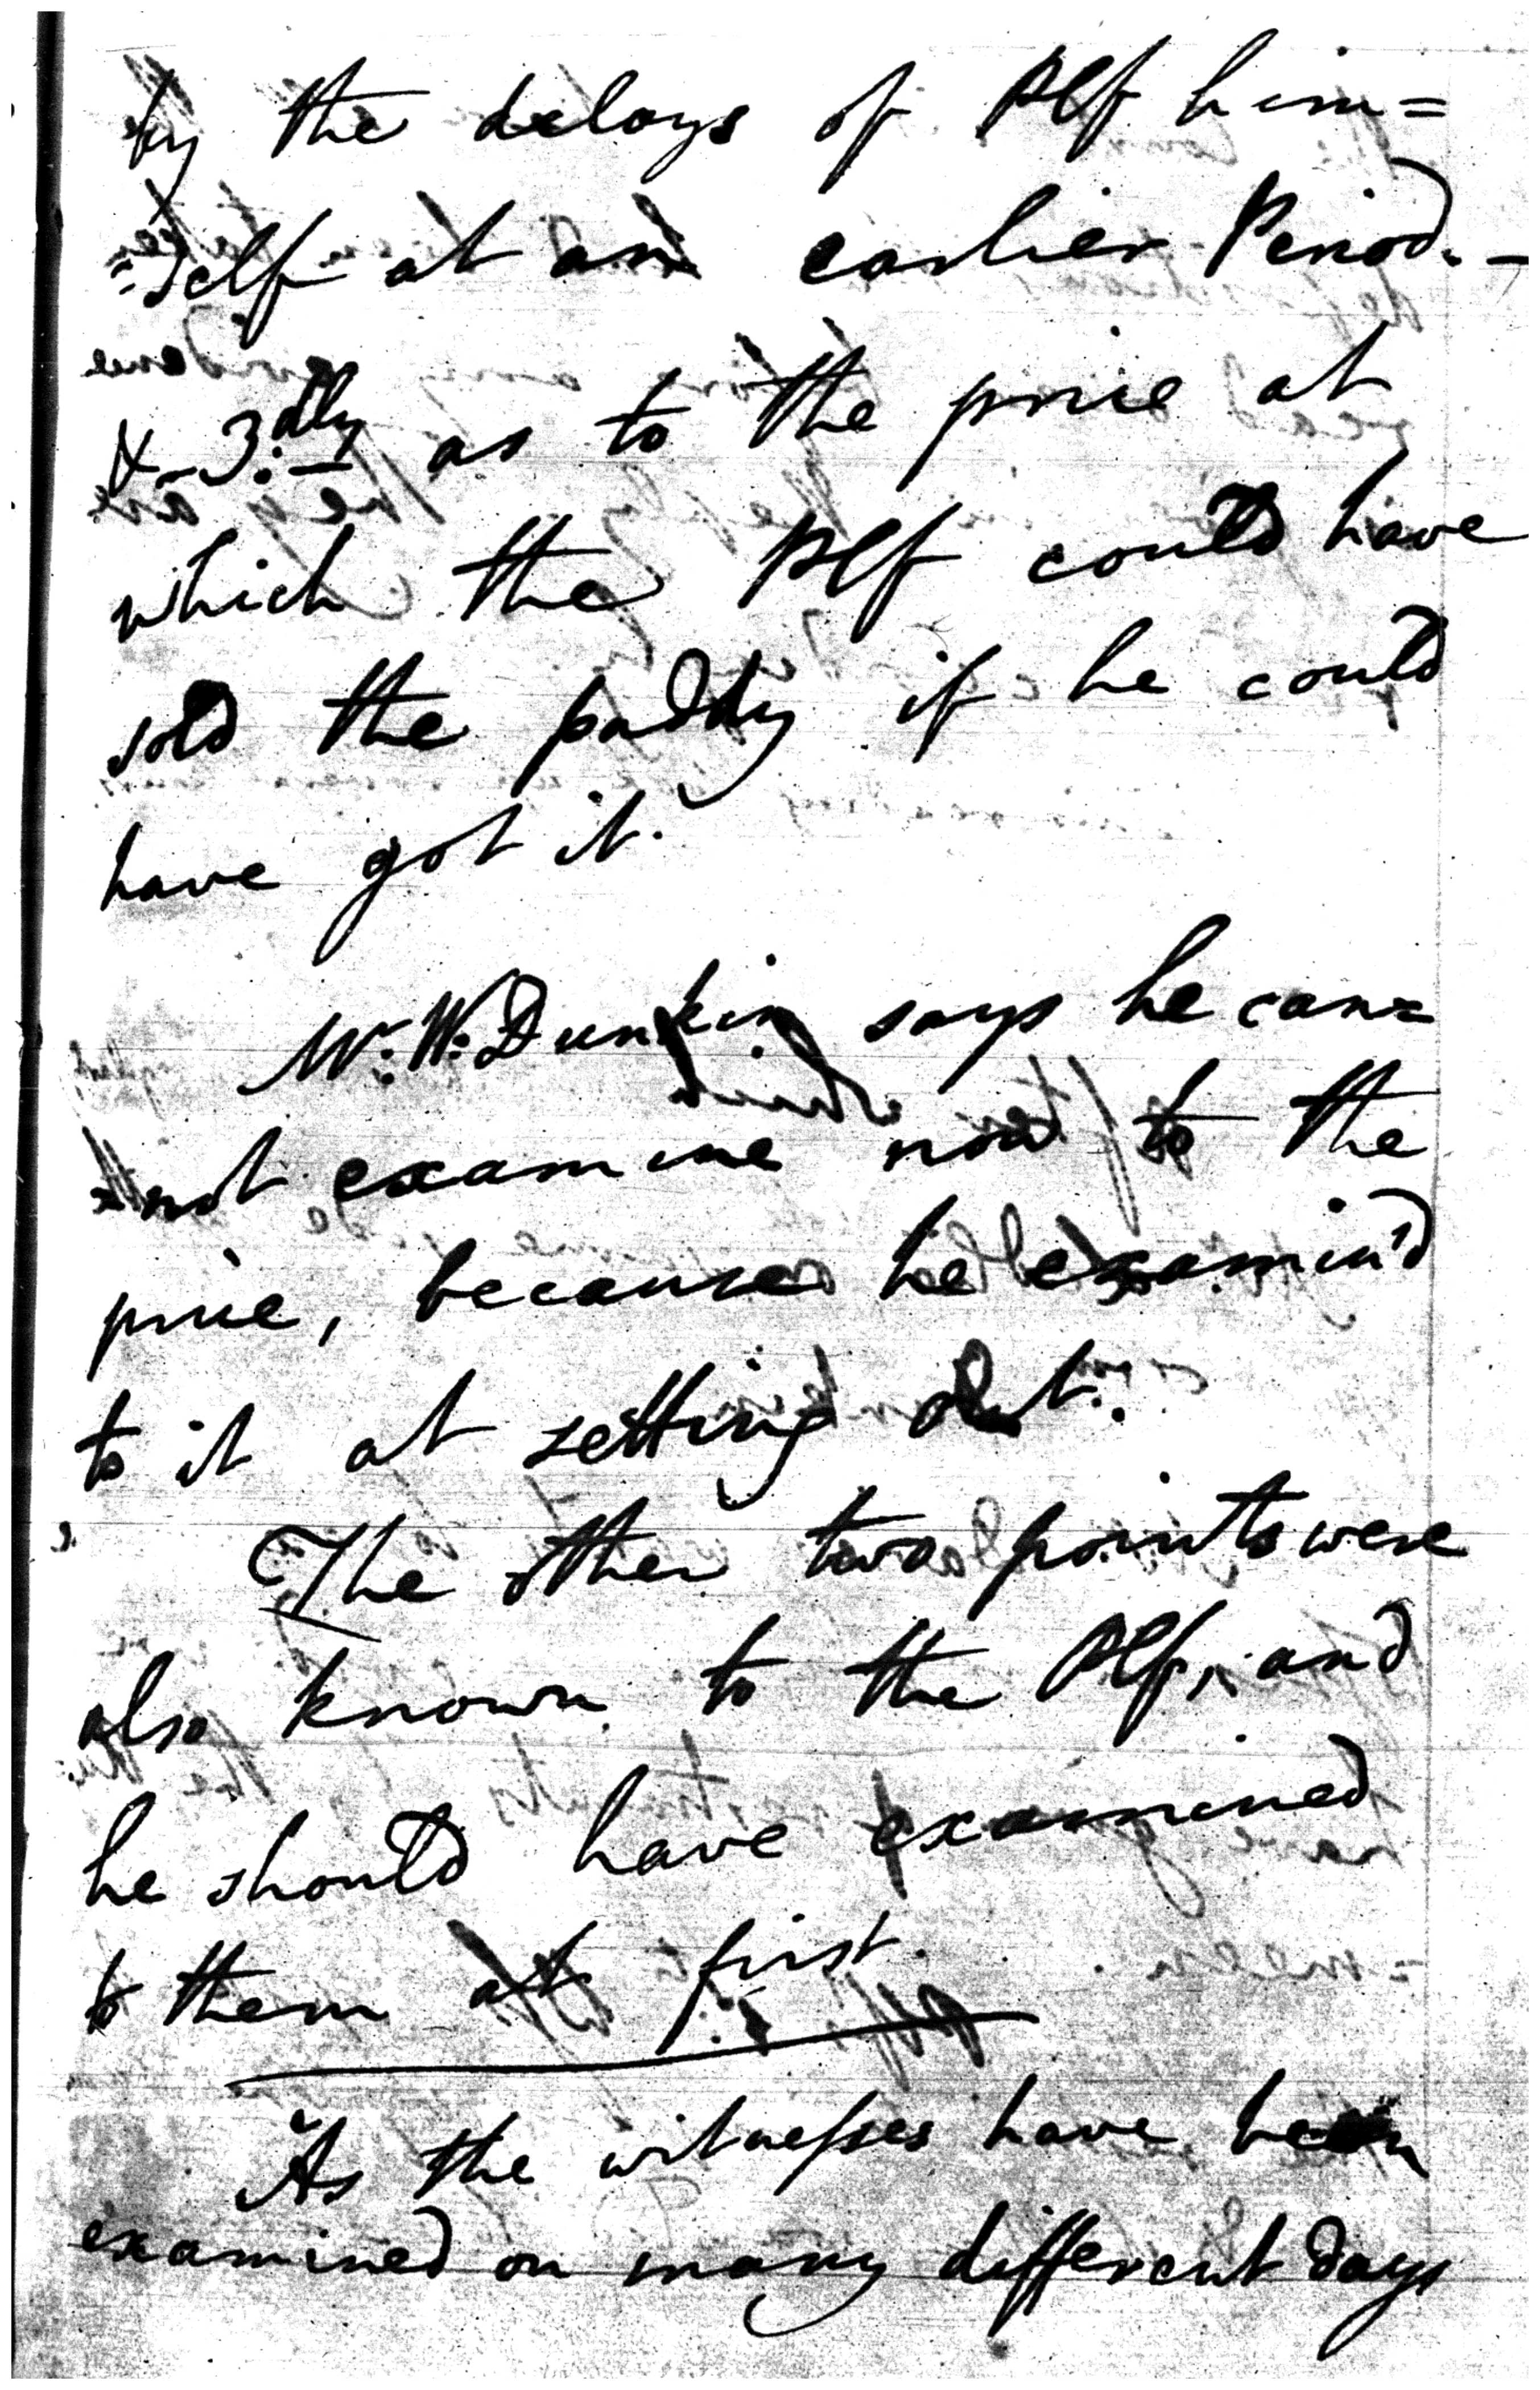 by the delays of Plf him=
=self at an earlier Period. -
& - 3.dly - as to the price at
which the Plf could have
sold the paddy if he could
have got it.
Mr. W. Dunkin says he can=
=not examine now to the
price, because he examin'd
to it at setting out.
The other two points were
also known to the Plf, and
he should have examined
to them at first.
As the witnesses have been
examined on many different days